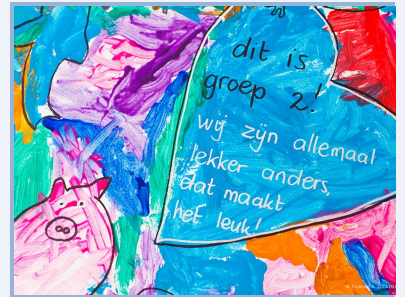 dit is
groep 2!
wij zijn allemaal
lekker anders,
dat maakt
het leuk!